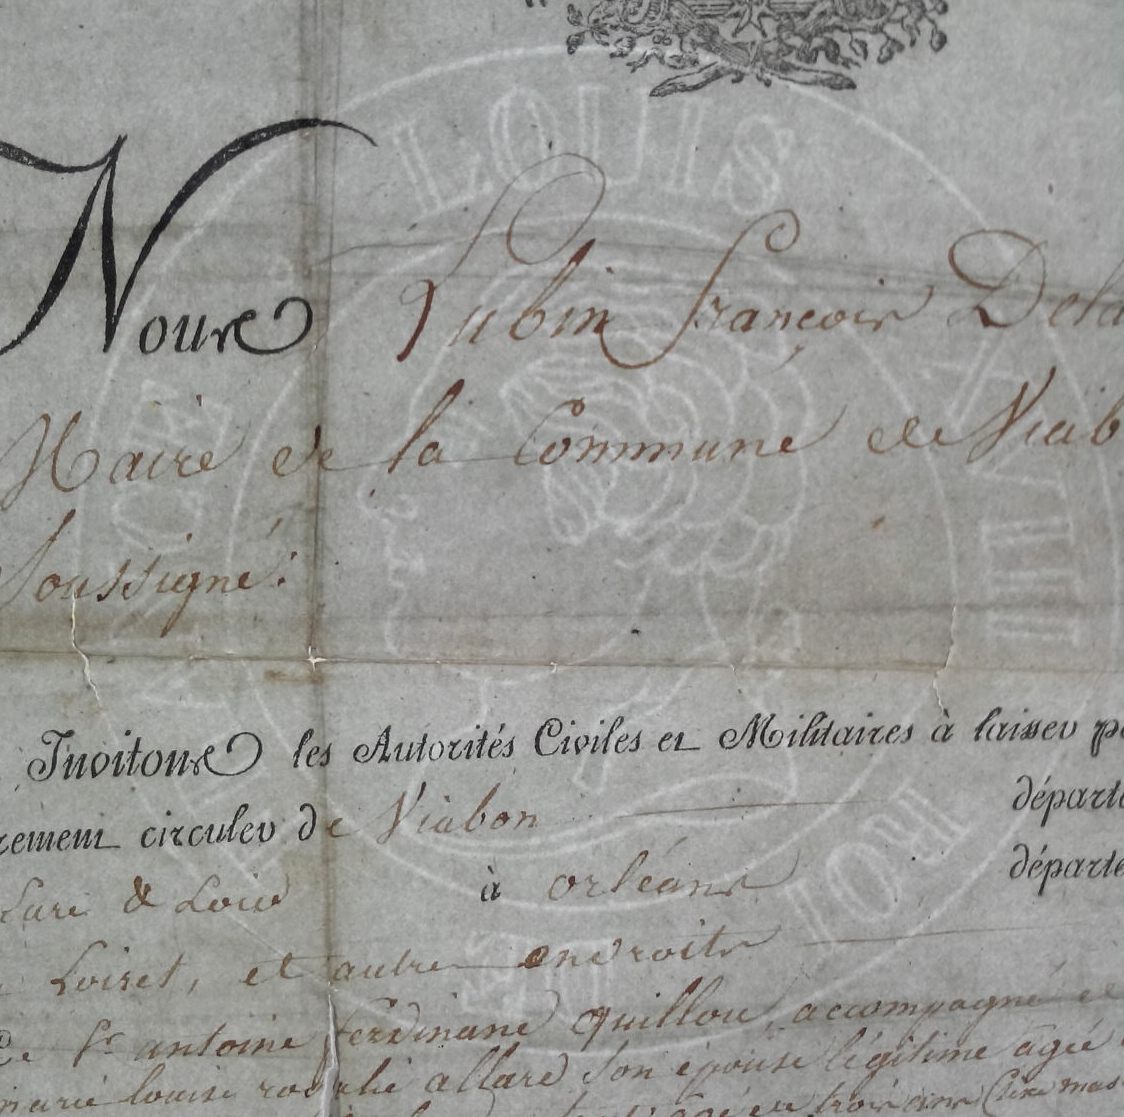 LOUIS XVIII ROI DE
Nous Lubin françois Dela
Maire de la Commune de Viab
Soussigné:
Invitons les Autorités Civiles et Militaires à laisser pa
rement circuler de Viabon départe
Eure & Loir à orléans départe
Loiret, et autre endroits
Le Sr antoine ferdinand quillou, accompagné de
marie louise rosalie allard son épouse légitime agée
trois ans